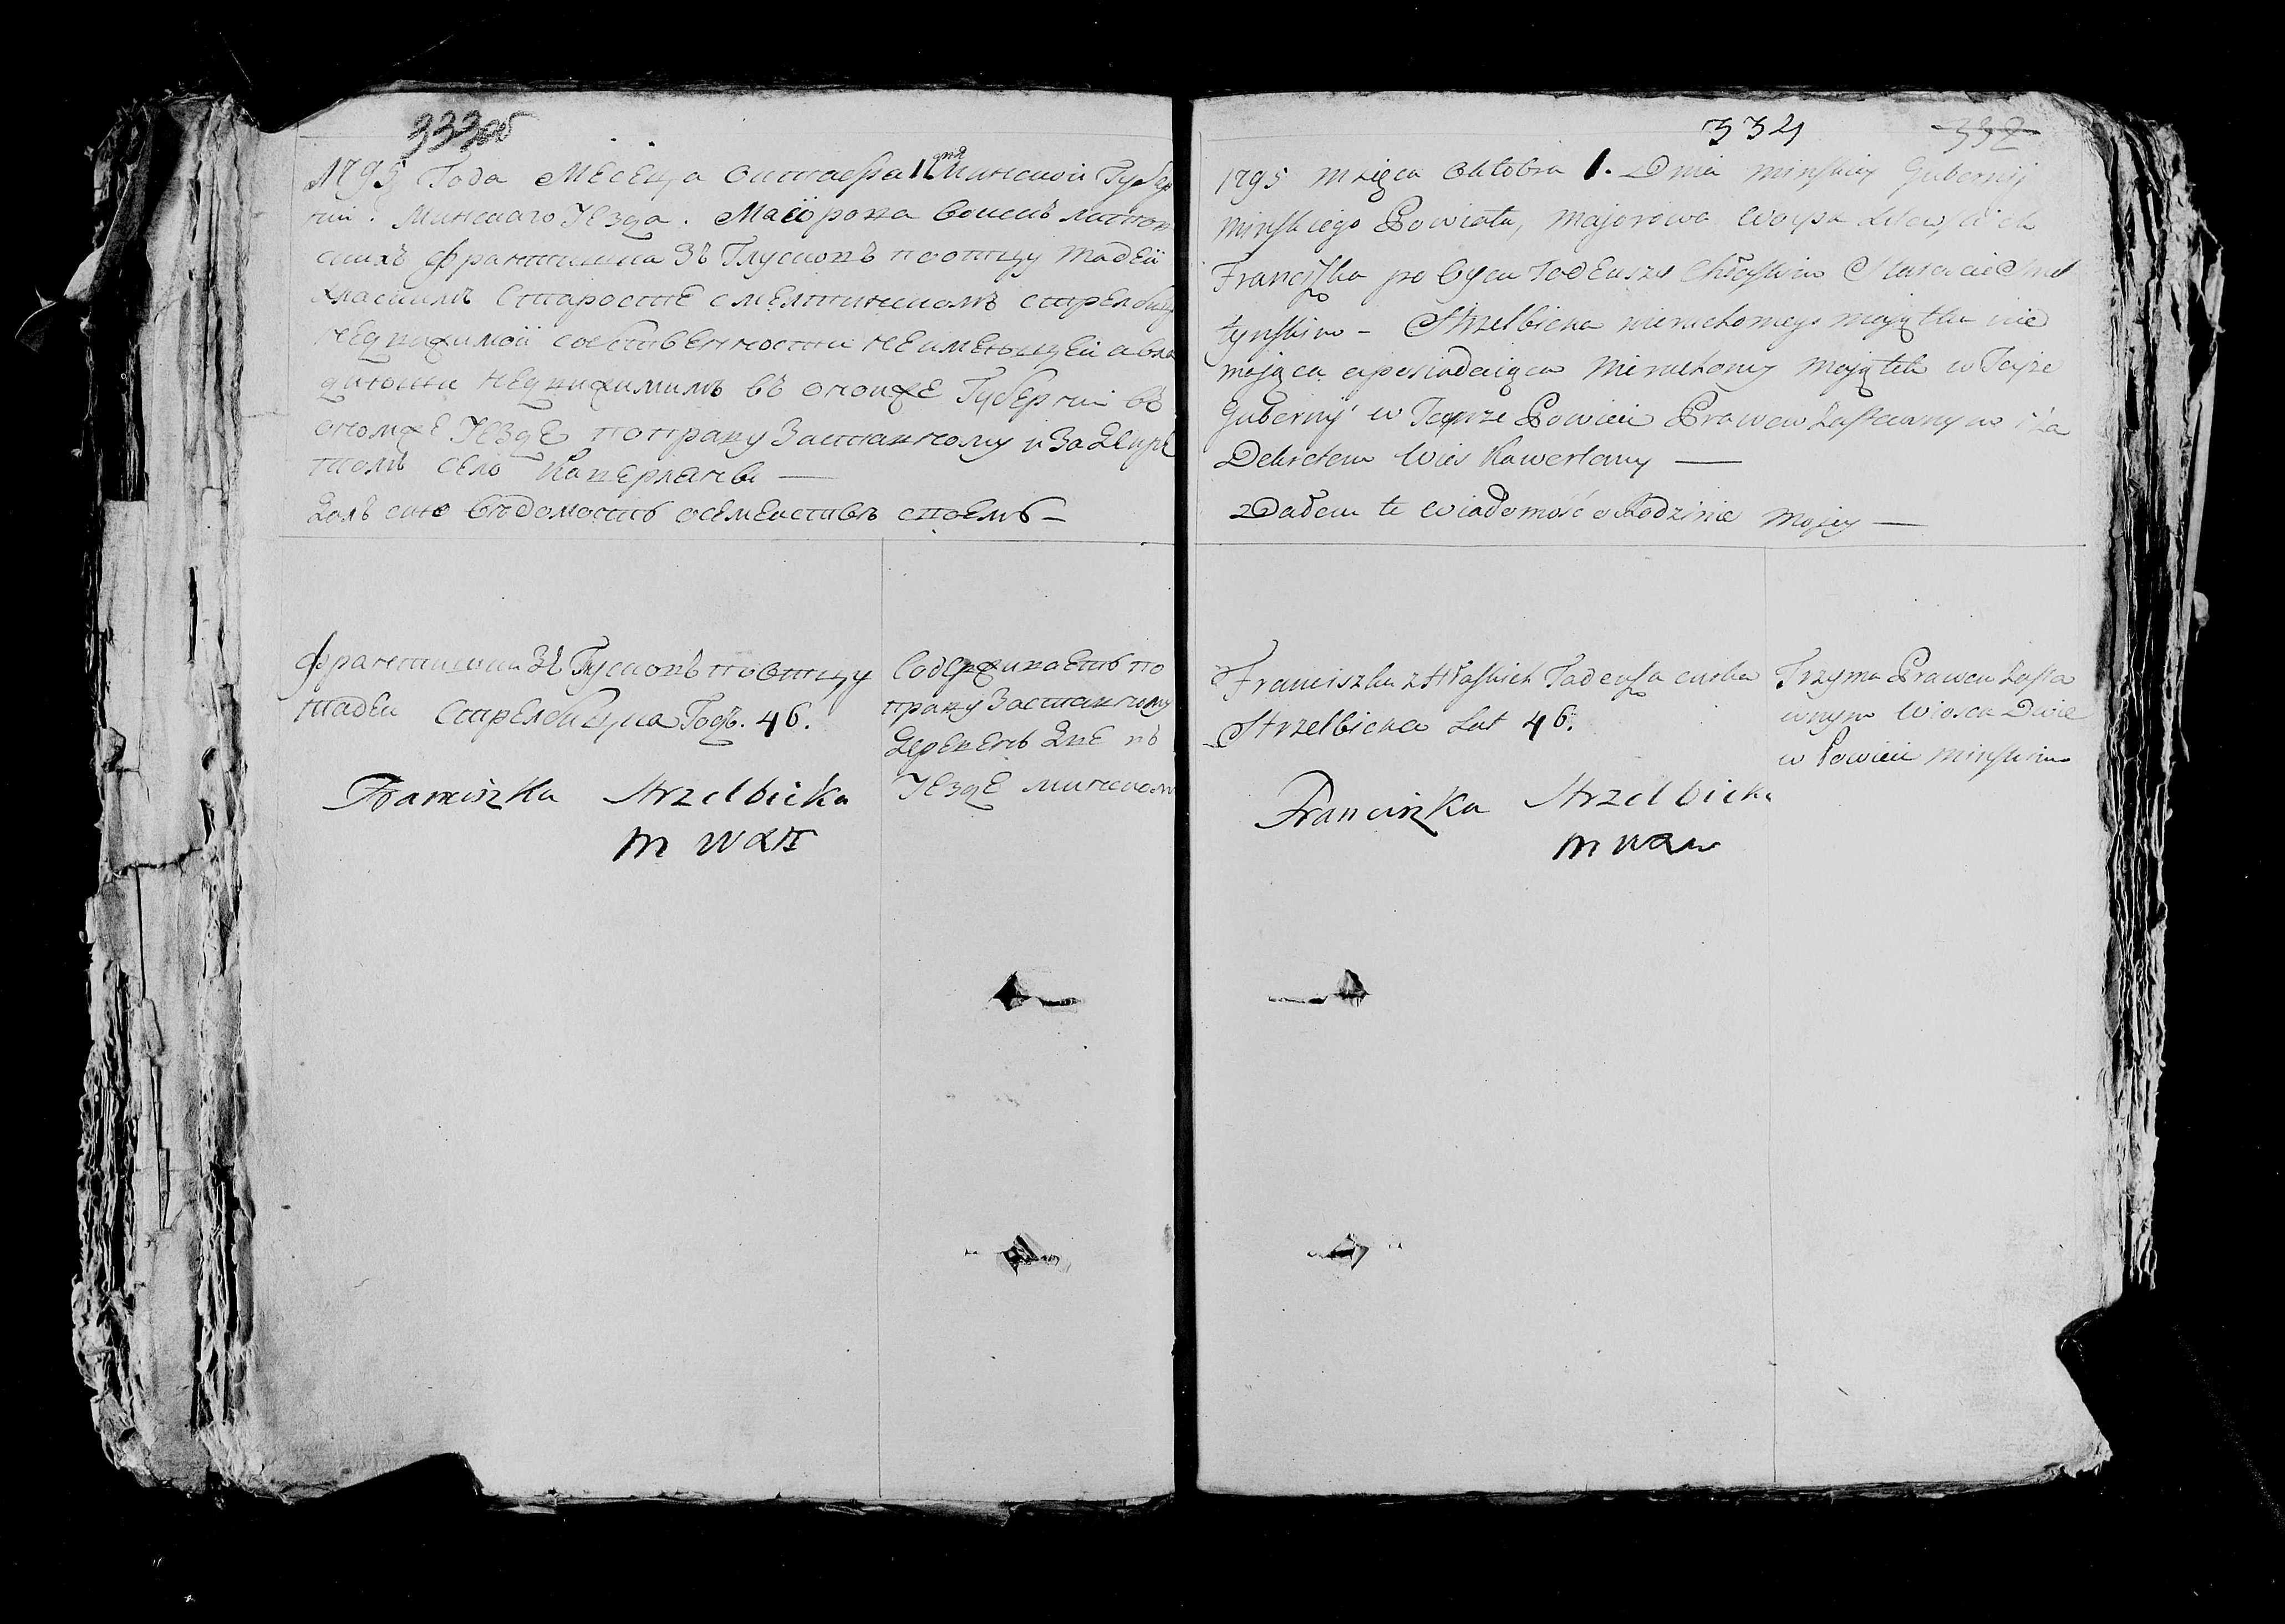 333об
1795 Года Месеца октаебра 1 дня Минской Губер
нии. Минскаго Уезда. Маиорова воискъ литов
скихъ Францишка Зъ Глусковъ по отцу тадеи
хласкимъ Старосте смелтинскомъ стрелбицка
недвижимой собственности неимеющей а вла
диющи недвижимимъ въ оноиже Губернии въ
ономже Уезде по праву Заставному и За Декре
томъ село Каверляны —
Далъ сию ведомость о семействе своемъ —
Францишка Зъ Глусковъ по отцу
тадеи Стрелбицка Годъ. 46.
Franciszka Strzelbicka
Содерживаетъ по
праву Заставному
Деревень Две въ
Уезде минском
334
332
1795 mięca Oktobra 1. Dnia Minskiey Gubernij
Minskiego Powiatu, Majorowa Woysk Litewskich
Franciszka po Oycu Tadeuszu Chłaskim Staroście Smel
tynskim - Strzelbicka nieruchomego majątku nie
mająca a posiadaiąca Nieruchomy Majątek w Teyże
Gubernij w Tymże Powiecie Prawem Zastawnym i Za
Dekretem Wieś Kawerlany —
Dałem tę Wiadomość o Rodzinie Mojey —
Franciszka z Hłaskich Tadeusza curka
Strzelbicka Lat 46.
Franciszka Strzelbicka
Trzyma Prawem Zasta
wnym Wiosek Dwie
w Powiecie Minskim